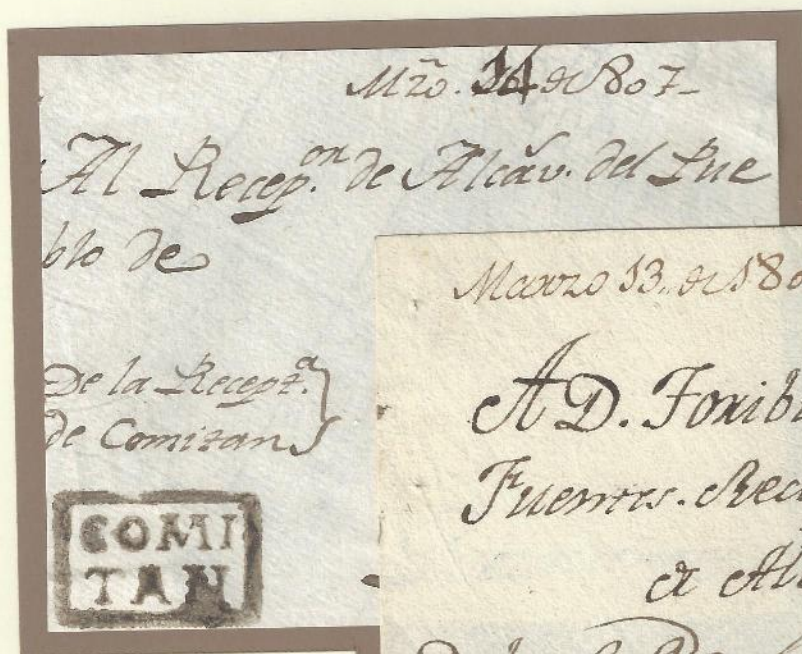 Mzo. 14 de 807
Al Recep.on de Alcav. del Pue
blo de
De la Recept.a
de Comitan
COMI
TAN
Marzo 13. de 180
A D. Toribi
Fuentes. Rec